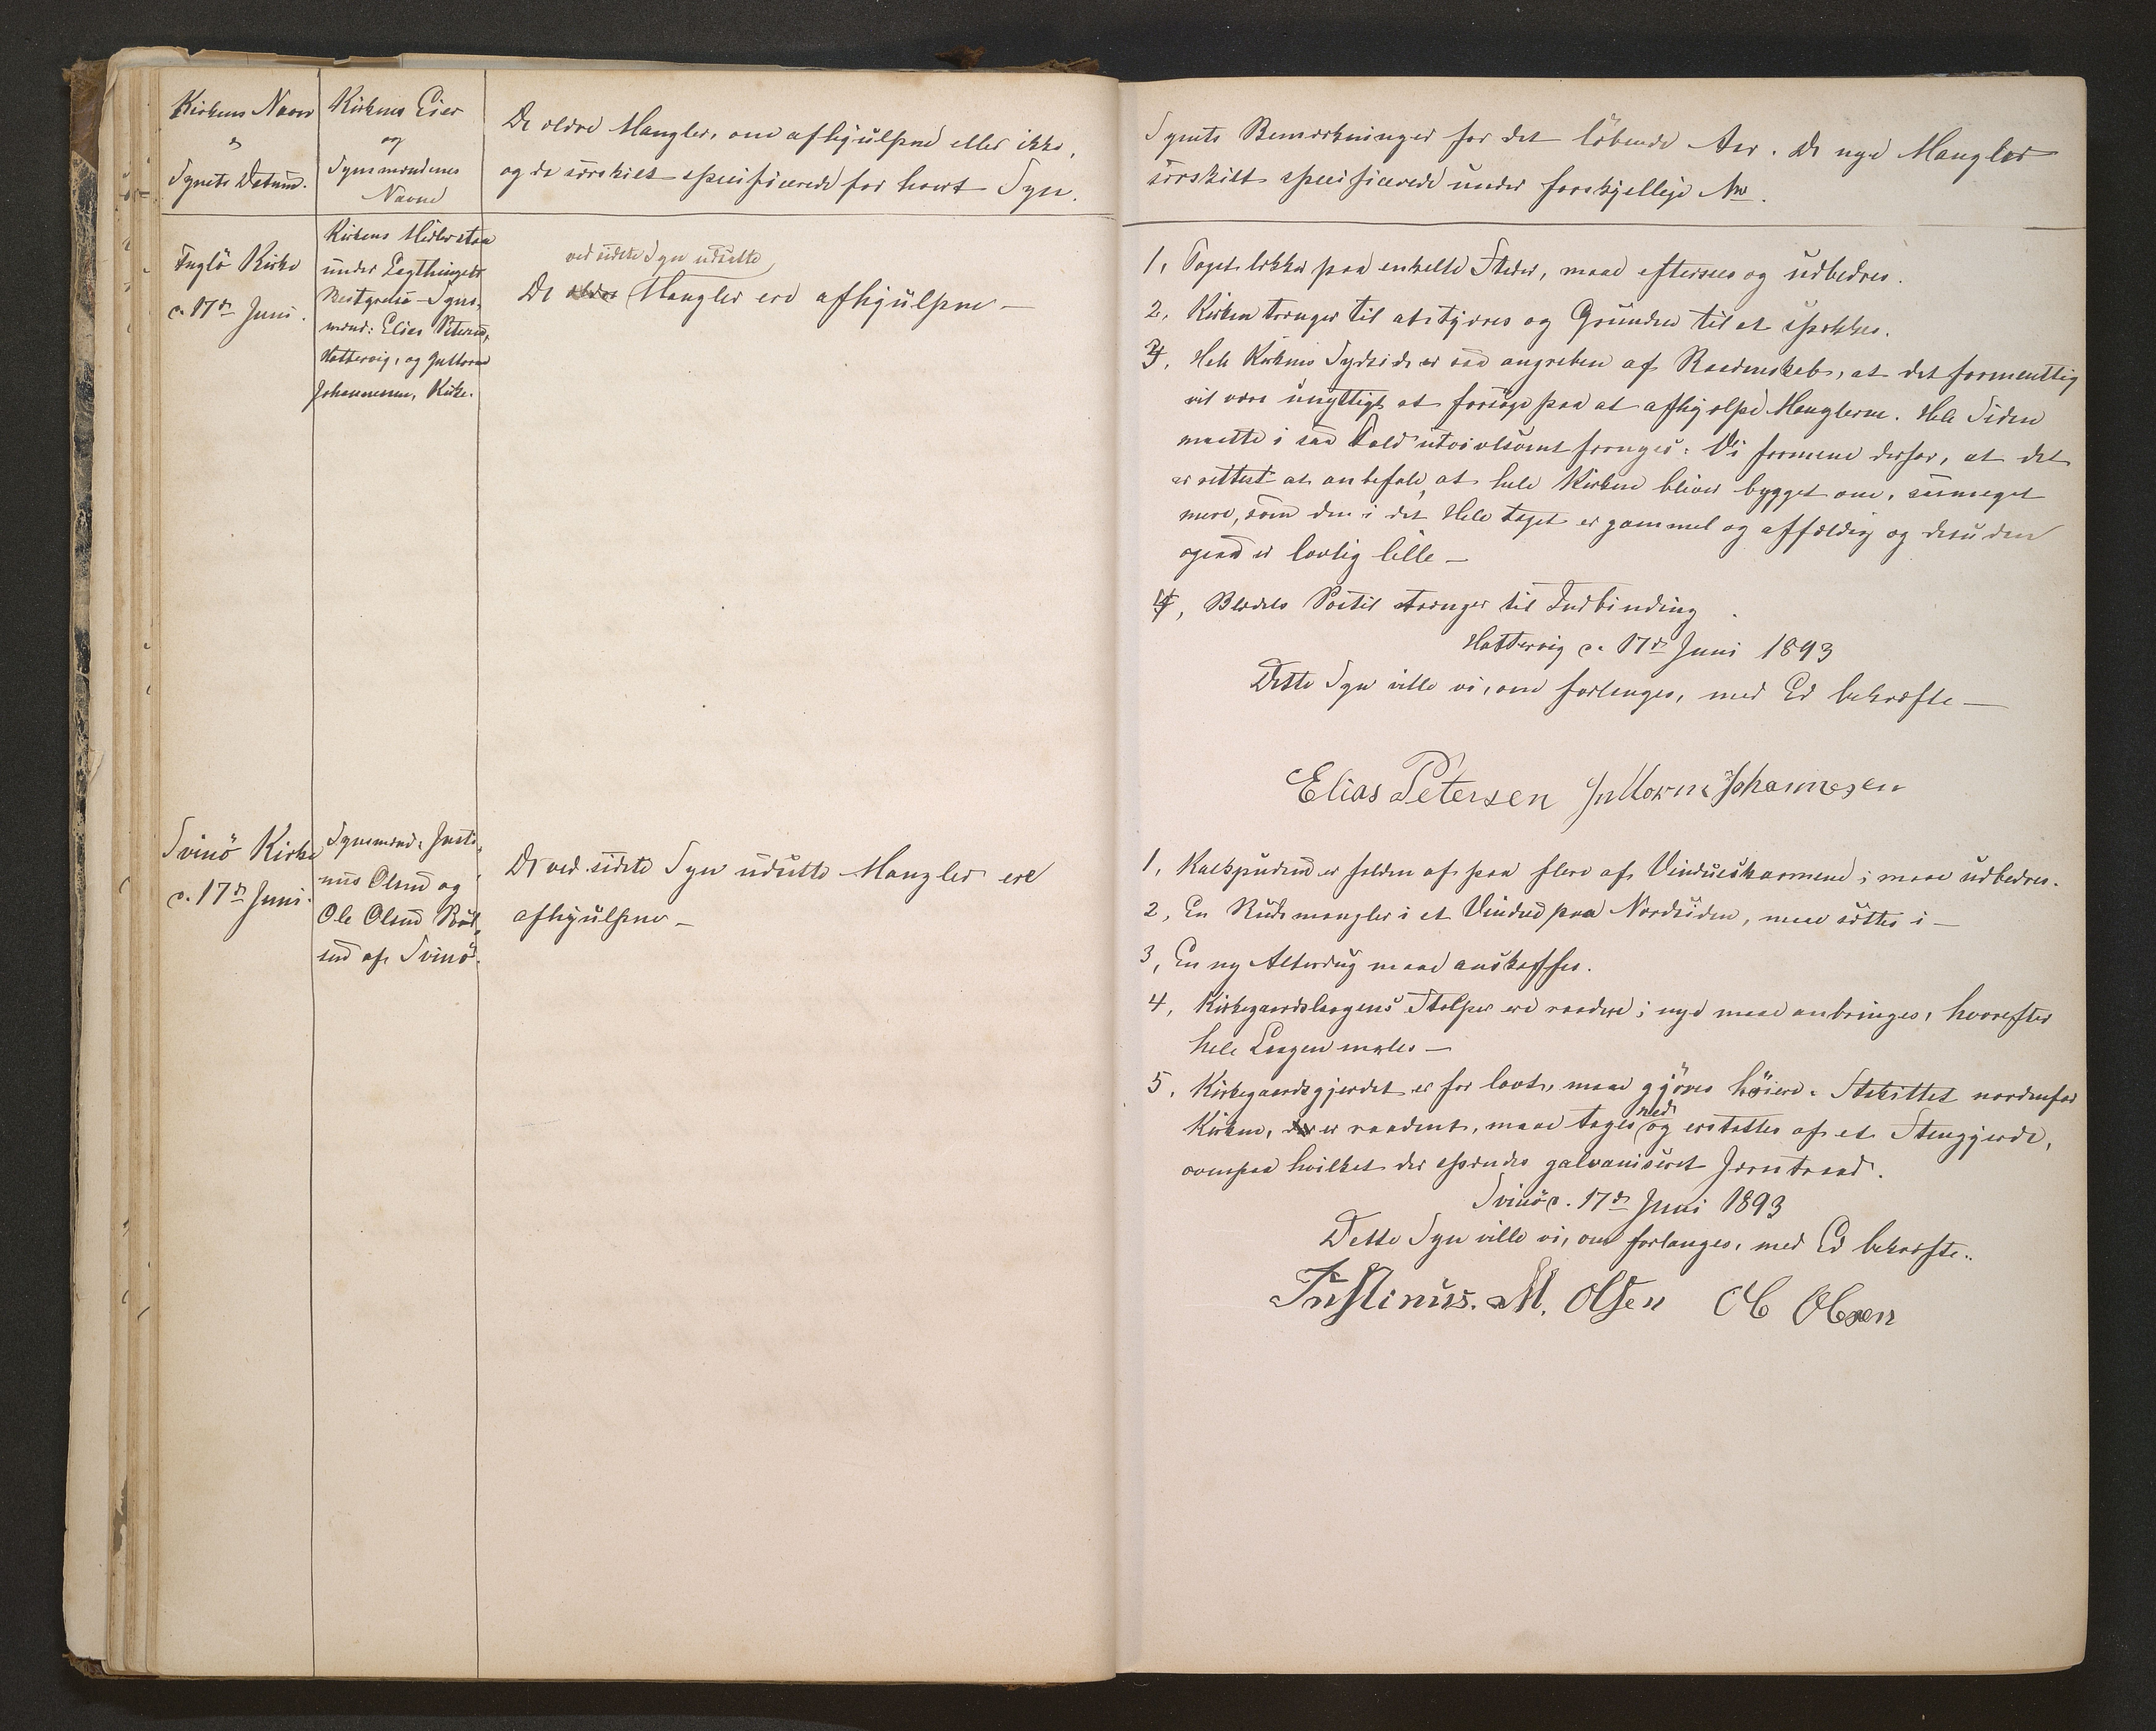 Kirkens Navn
&
Synets Datum.
Kirkens Eier
og
Synsmændenes
Navne
De ældre Mangler, om afhjulpne eller ikke,
og de særskilt specificerede for hvert Syn.
Fuglö Kirke
d. 17de Juni.
Kirkens Midler staa
under Lagthingets
Bestyrelse – Syns-
mænd: Elias Petersen,
Hattervig, og Guttorm
Johannesen, Kirke.
ved sidste Syn udsatte
De ældre Mangler ere afhjulpne –
Svinö Kirke
d. 17de Juni.
Synsmænd: Justi-
nus Olsen og
Ole Olsen
af Svinö.
De ved sidste Syn udsatte Mangler ere
afhjulpne –
Synets Bemærkninger for det löbende Aar. De nye Mangler
særskilt specificerede under forskjellige No.
1, Taget lækker paa enkelte Steder, maa efterses og udbedres.
2, Kirken trænger til at tjæres og Grunden til at spækkes.
3, Hele Kirkens Sydside er saa angreben af Raadenskab, at det formentlig
vil være unyttigt at forsøge paa at afhjælpe Manglerne. Hele Siden
maatte i saa Fald utvivlsomt fornyes. Vi formene derfor, at det
er rettest at anbefale, at hele Kirken bliver bygget om, saameget
mere, som den i det Hele taget er gammel og affældig og desuden
ogsaa er lovlig lille –
4, Blædels Postil trænger til Indbinding.
Hattervig d. 17de Juni 1893
Dette Syn ville vi, om forlanges, med Ed bekræfte –
Elias Petersen Guttorm Johannesen
1, Kalkpudsen er falden af paa flere af Vindueskarmene; maa udbedres.
2, En Rude mangler i et Vindue paa Nordsiden, maa sættes i –
3, En ny Alterdug maa anskaffes.
4, Kirkegaardslaagens Stolper ere raadne; nye maa anbringes, hvorefter
hele Laagen males –
5, Kirkegaardsgjerdet er for lavt, maa gjöres höiere. Stakittet nordenfor
Kirken, der er raadent, maa tages ned og erstattes af et Stengjerde,
ovenpaa hvilket der spændes galvaniseret Jerntraad.
Svinö d. 17de Juni 1893
Dette Syn ville vi, om forlanges, med Ed bekræfte.
Justinus. M. Olsen Ole Olsen